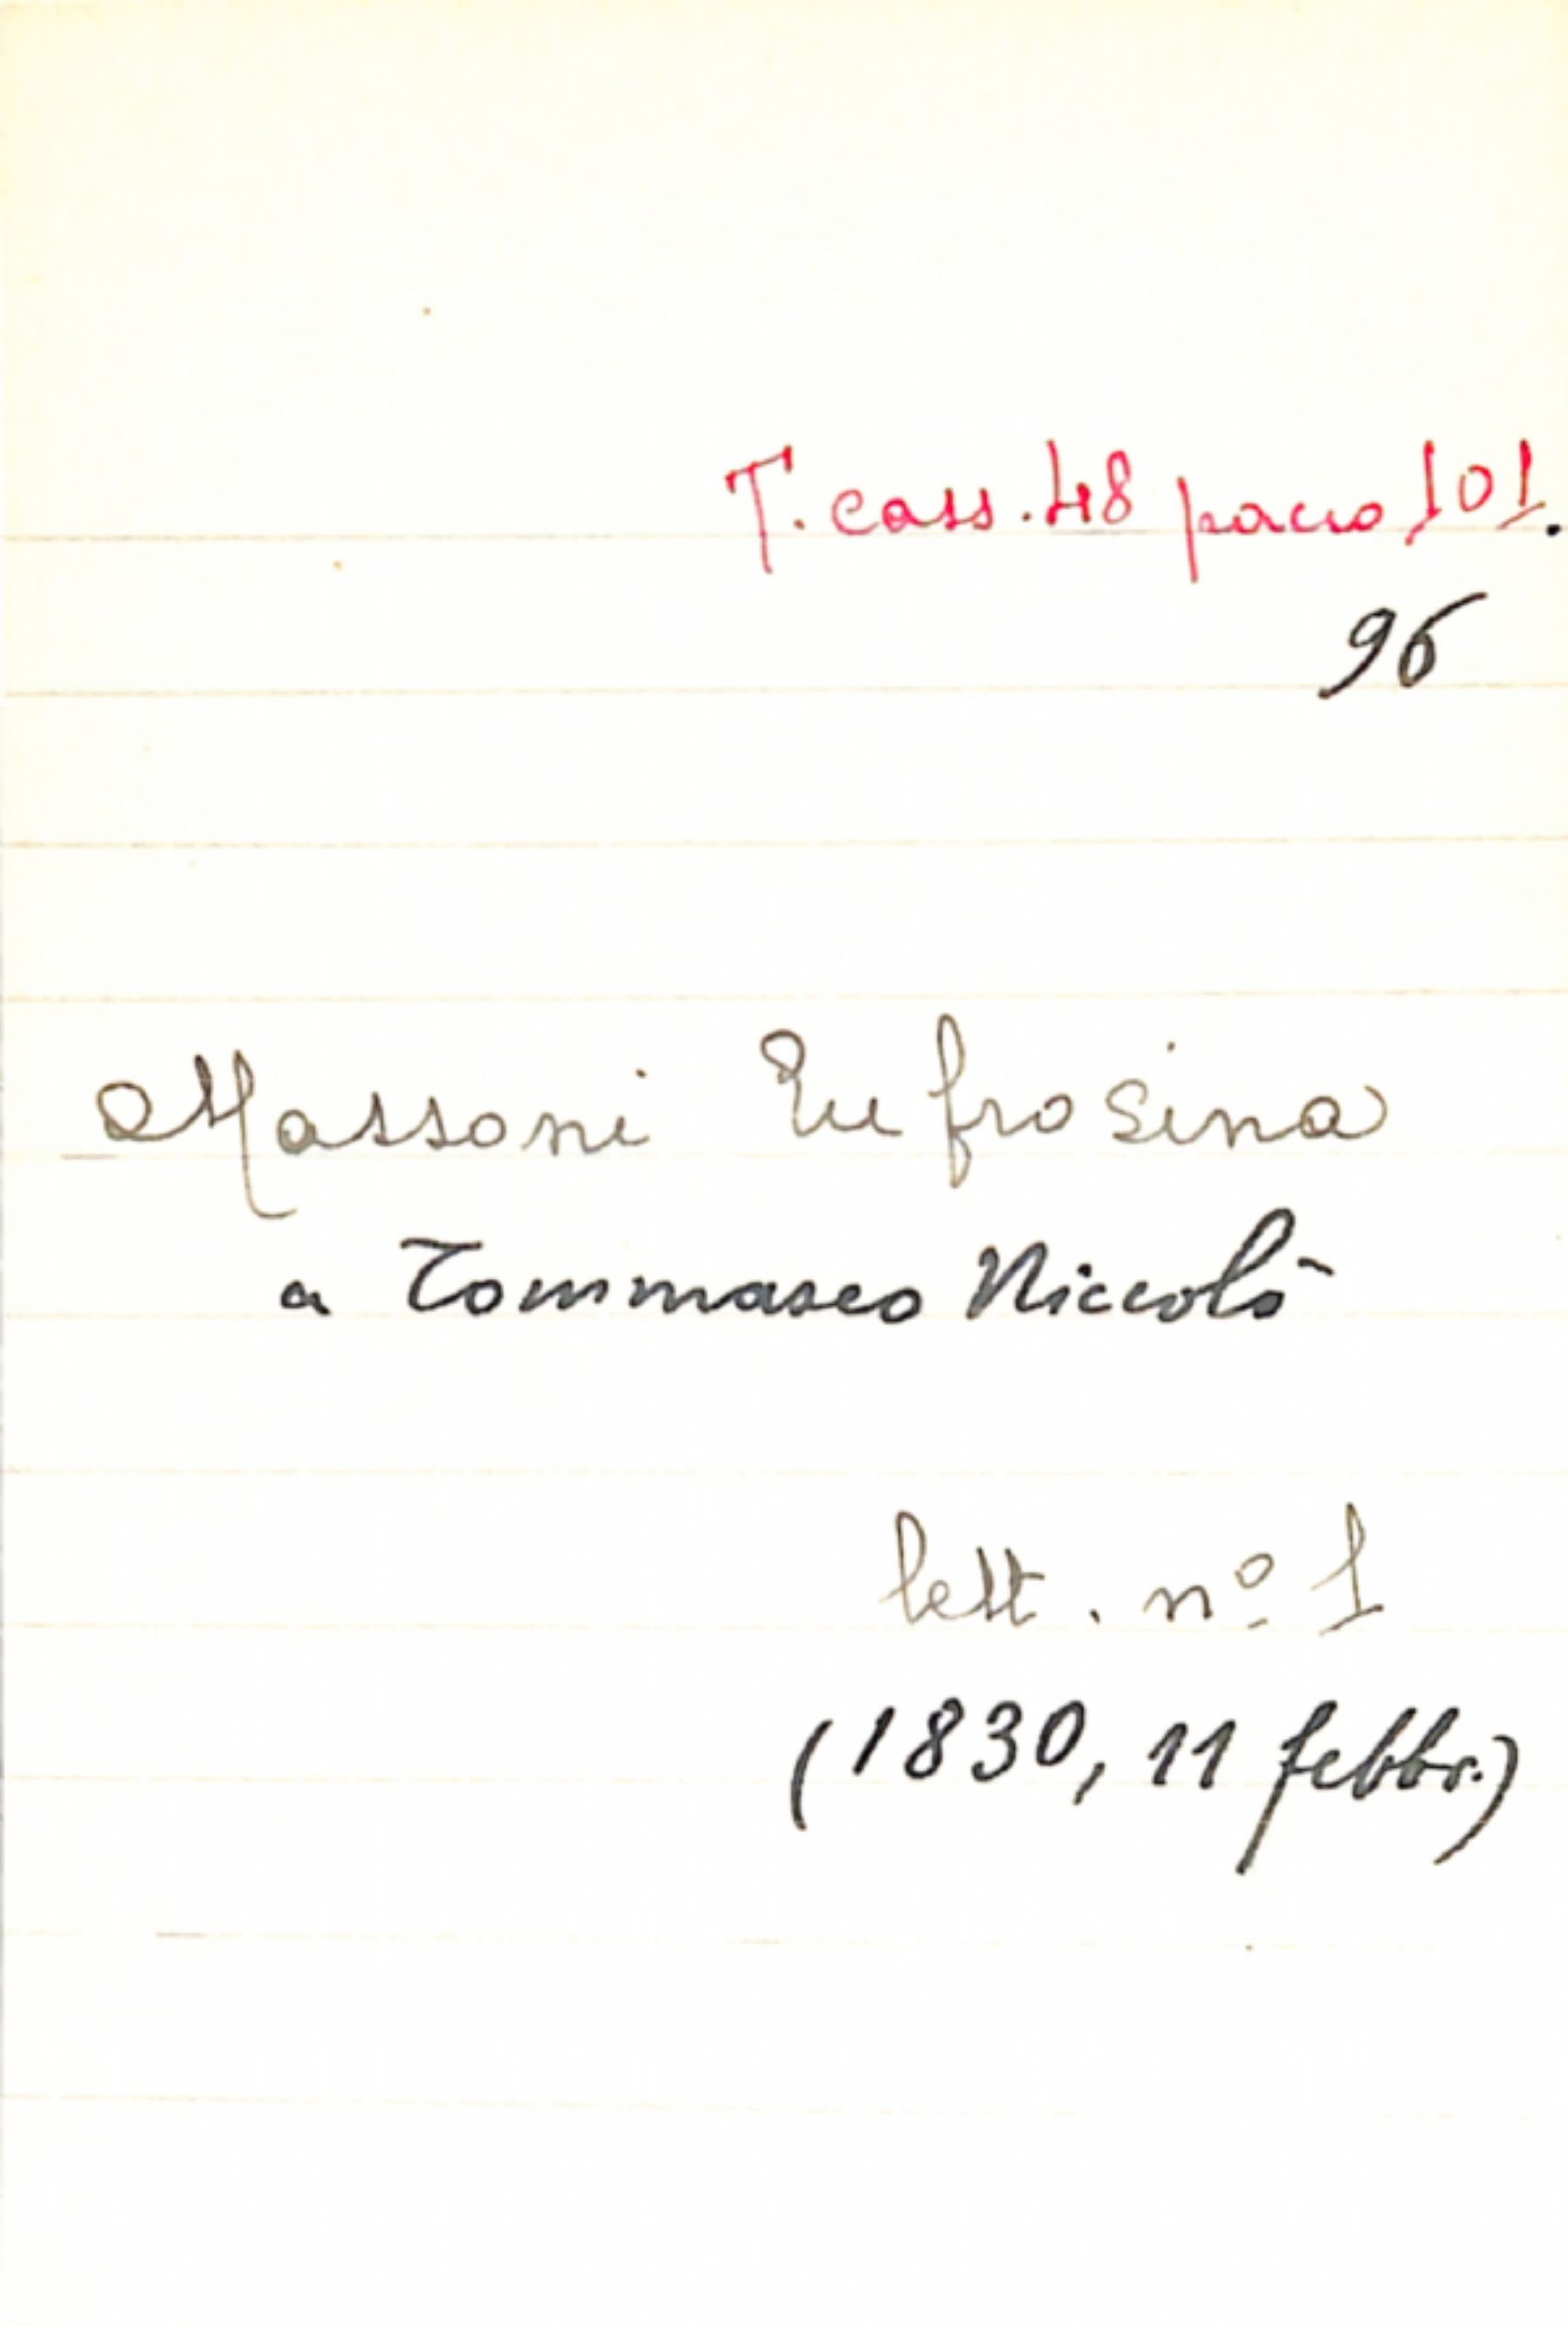 T. cass. 48 pacco 101.
96
Massoni Eufrosina
a Tommaseo Niccolò
lett. nº 1
(1830, 11 febbr.)